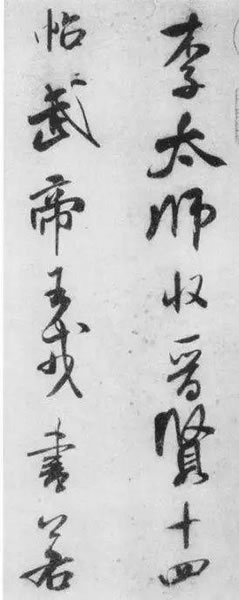 李太師收晉賢十四
帖武帝王戎書若